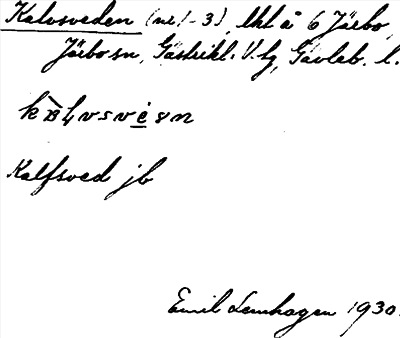 Kalvsveden (nr 1-3), lht å 6 Järbo,
Järbo sn, Gästrikl. V. tg, Gävleb. l.
Kalfsved jb
Emil Lemhagen 1930.